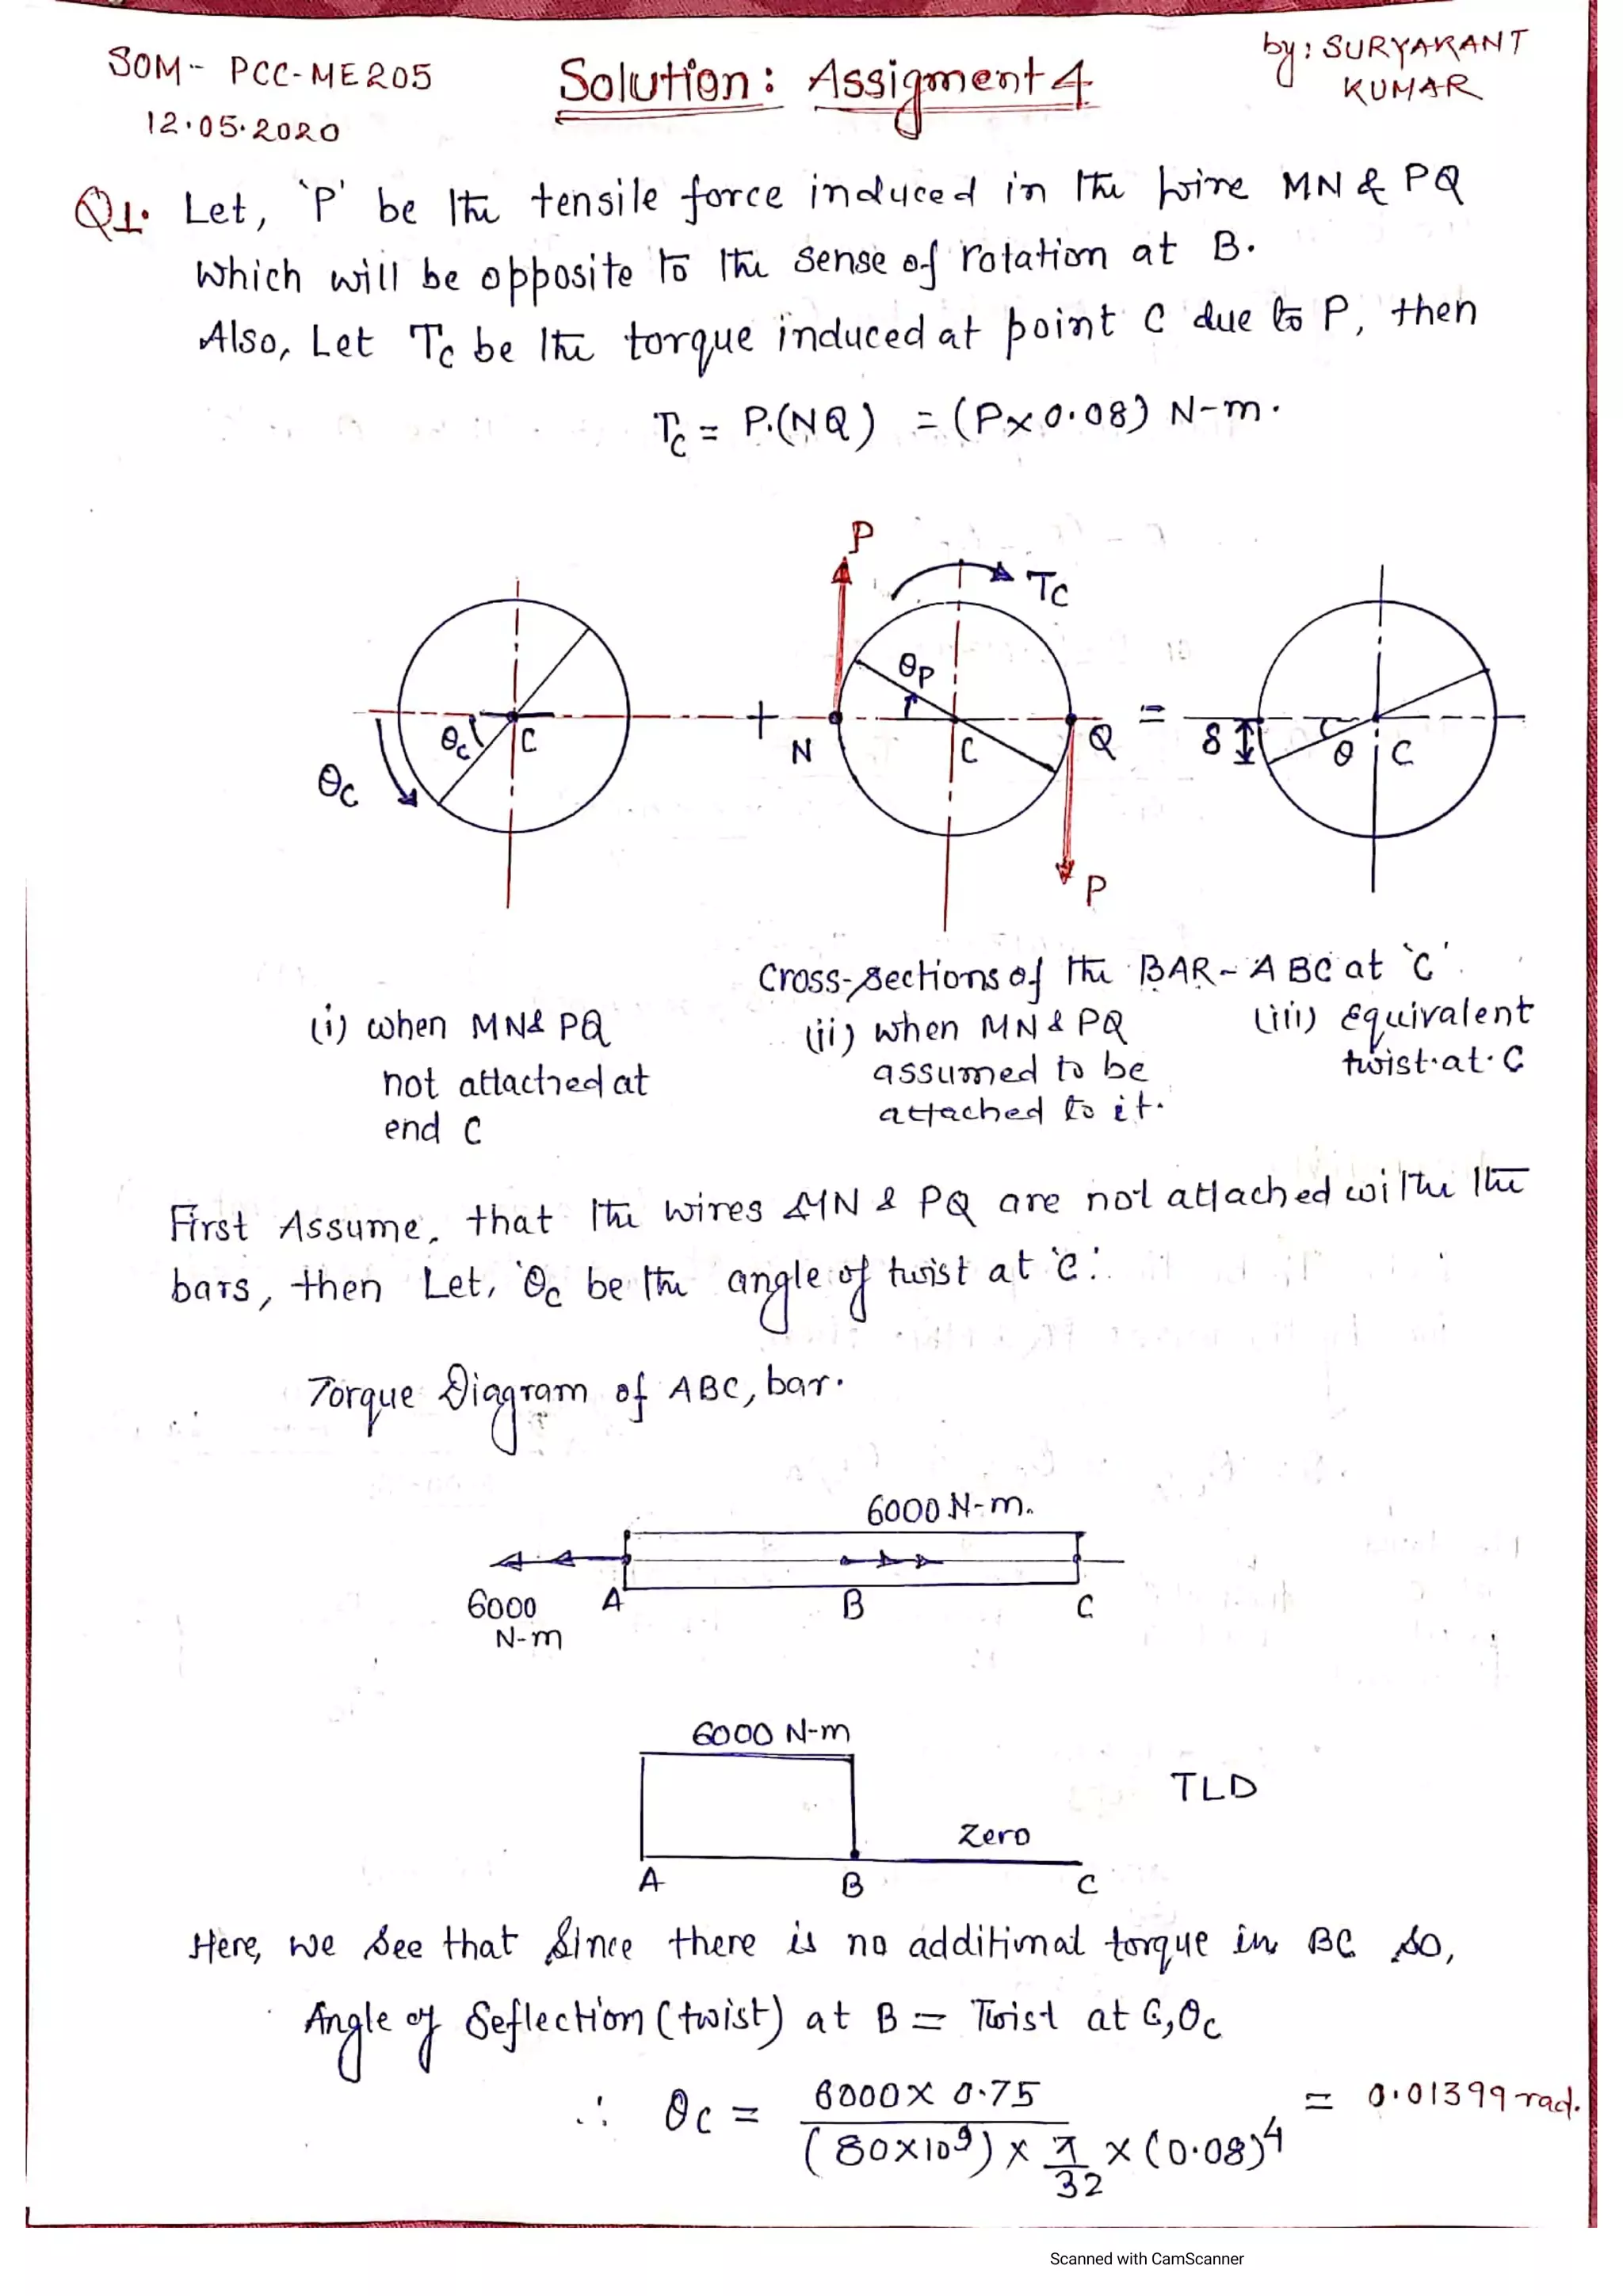 SOM- PCC-ME205
Solution: Assigment 4
by: SURYAKANT
KUMAR
12.05.2020
Q1. Let, 'P' be the tensile force induced in the wire MN & PQ
which will be opposite to the sense of rotation at B.
Also, Let Tc be the torque induced at point C due to P, then
Tc = P.(NQ) = (P×0.08) N-m.
P
Tc
θc
θc
C
+
N
θp
C
Q
P
=
δ
θ
C
Cross-sections of the BAR-ABC at 'C'.
(i) when MN & PQ
not attached at
end C
(ii) when MN & PQ
assumed to be
attached to it.
(iii) Equivalent
twist at C
First Assume, that the wires MN & PQ are not attached withe the
bars, then Let, 'θc be the angle of twist at 'C'.
Torque Diagram of ABC, bar.
6000 N-m.
6000
N-m
A
B
C
6000 N-m
TLD
Zero
A
B
C
Here, we see that since there is no additional torque in BC so,
Angle of deflection (twist) at B = Twist at C, θc
∴ θc = 6000 × 0.75 / (80×10⁹) × π/32 × (0.08)⁴ = 0.01399 rad.
Scanned with CamScanner